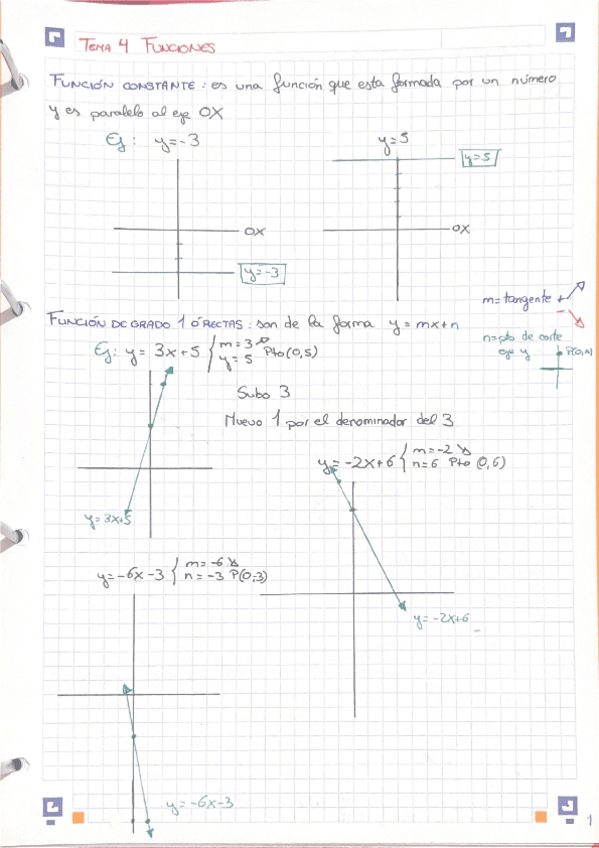 TEMA 4 FUNCIONES
FUNCIÓN CONSTANTE: es una función que esta formada por un número
y es paralelo al eje OX
Ej: y=-3
y=5
y=5
OX
OX
y=-3
m=tangente +
-
FUNCIÓN DE GRADO 1 Ó RECTAS: son de la forma y=mx+n
n=pto de corte
eje y P(0,n)
Ej: y=3x+5 { m=3
y=5 Pto(0,5)
Subo 3
Muevo 1 por el denominador del 3
y=-2x+6 { m=-2
n=6 Pto (0,6)
y=3x+5
y=-6x-3 { m=-6
n=-3 P(0,-3)
y=-2x+6
y=-6x-3
1